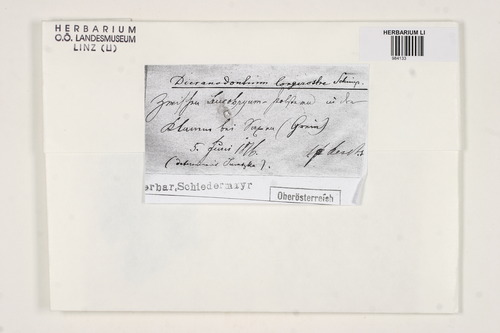 HERBARIUM
O.Ö. LANDESMUSEUM
LINZ (LI)
HERBARIUM LI
984133
Dicranodontium longirostre Schimp.
Zwischen Leucobryum-polstern in der
Klamm bei Saxen (Grein)
5. Juni 1876.
(determinavit Juratzka).
erbar, Schiedermayr
Oberösterreich